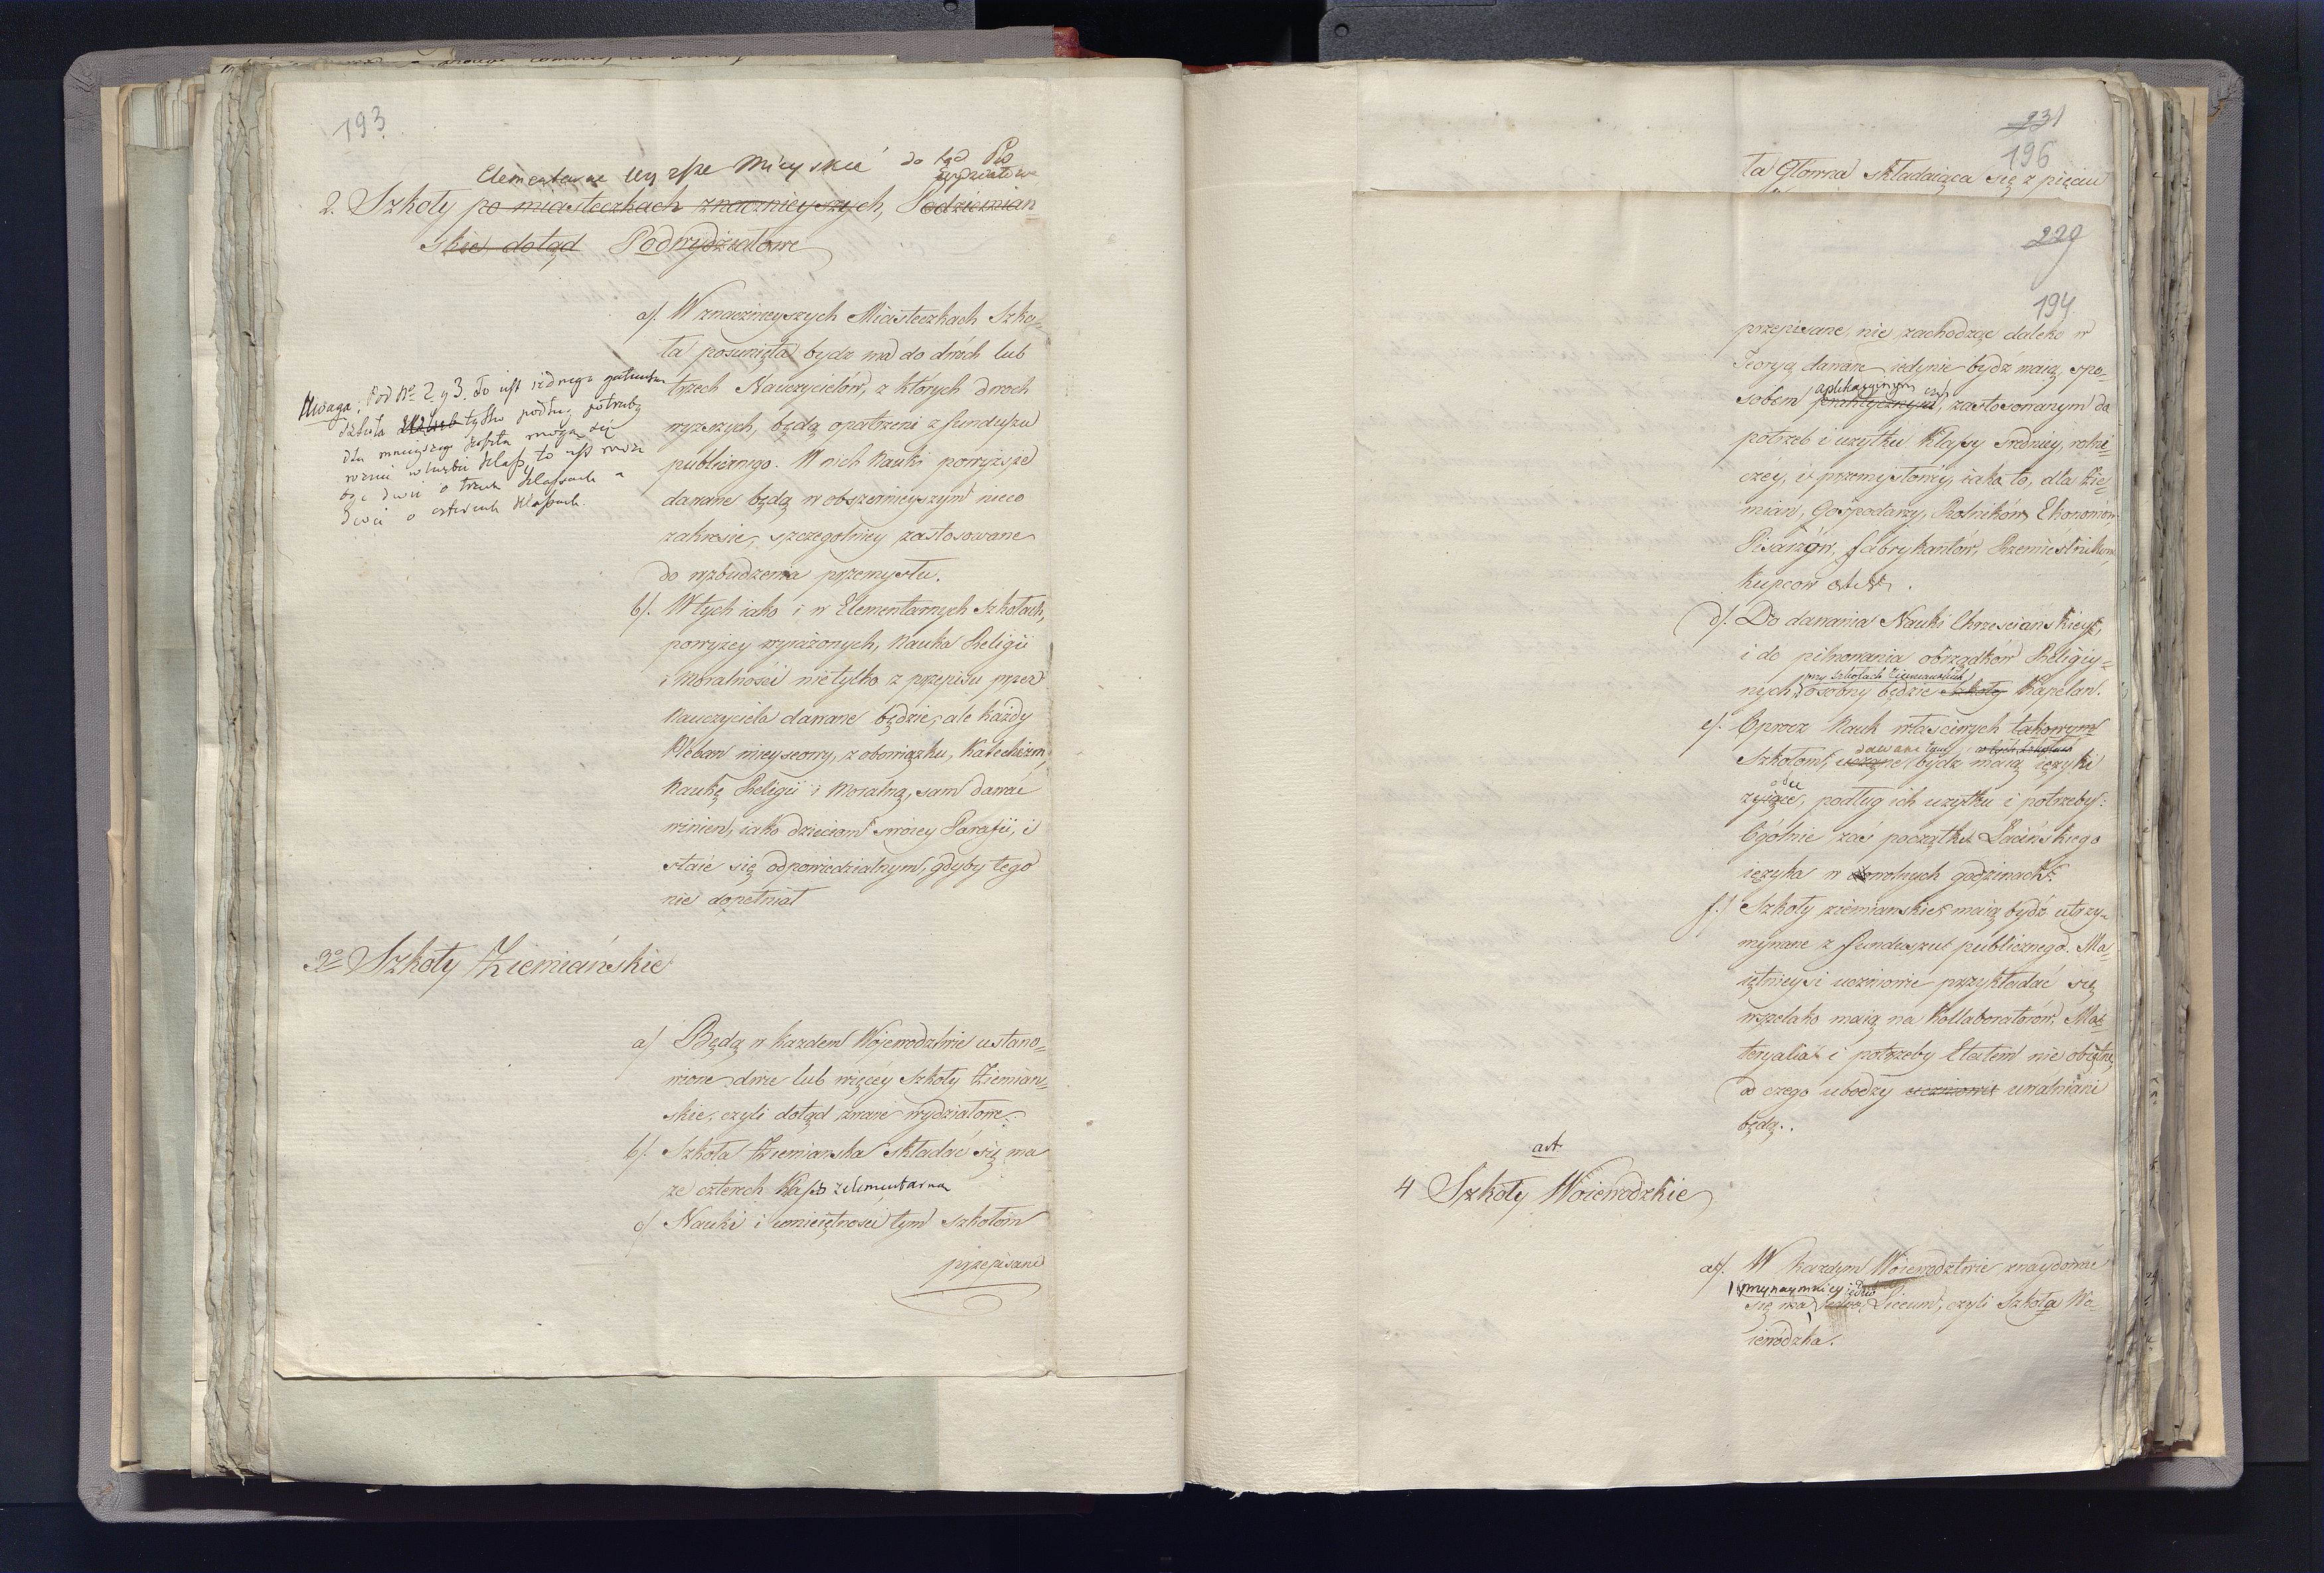 193
Elementarne wyższe Mieyskie do tąd Pod
wydziałowe
2. Szkoły po miasteczkach znacznieyszych, Podziemian=
skie, dotąd Podwydziałowe
a/. W znacznieyszych Miasteczkach Szko=
ła posunięta bydz ma do dwóch lub
trzech Nauczycielów, z których dwoch
wyzszych, będą opatrzeni z funduszu
publicznego. W nich Nauki powyższe
dawane będą w obszernieyszym nieco
zakresie, szczegolniey zastosowane
do wzbudzenia przemysłu.
Uwaga: Pod No 2 y 3. to jest jednego gatunku
szkoła tylko podług potrzeby
dla mnieyszego
w liczbie Klass, to jest
dwie o trzech Klassach a
dwie o czterech Klassach.
b/. W tych iako i w Elementarnych Szkołach,
powyżey wyrażonych, Nauka Religii
i Moralności nietylko z przepisu przez
Nauczyciela dawane będzie, ale każdy
Pleban mieyscowy, z obowiązku, Katechizm,
Naukę Religii i Moralną, sam dawać
winien, iako dzieciom swoiey Parafii, i
staie się odpowiedzialnym, gdyby tego
nie dopełniał
3o Szkoły Ziemiańskie
a/ Będą w kazdem Wojewodztwie ustano=
wione dwie lub więcey Szkoły Ziemian=
skie, czyli dotąd zwane wydziałowe.
b/. Szkoła Ziemianska składać się ma
ze czterech Klass z elementarną
c/ Nauki i umieiętności tym szkołom
przepisane
231
196
ła Główna składaiąca się z pięciu
229
194
przepisane, nie zachodząc daleko w
Teoryą dawane iedynie bydź maią, spo=
aplikacyinym czyli
sobem praktycznym, zastosowanym do
potrzeb i uzytku Klassy średniey, rolni=
czéy, i przemysłowéy, iako to, dla Zie=
mian, Gospodarzy, Rolników, Ekonomów,
Pisarzów, fabrykantow, Rzemieślnikow,
Kupcow etc.
d/. Do dawania Nauki Chrzescianskiey,
i do pilnowania obrządków Religiy=
przy Szkołach Ziemianskich
nych, osobny będzie Szkoły Kapelan.
e/. Oprocz Nauk właściwych takowym
dawane tym w tych szkołach
Szkołom, uczone bydz maią ięzyki
żyiące, podług ich uzytku i potrzeby:
Ogólnie zaś początki Łacińskiego
ięzyka w wolnych godzinach.
f./ Szkoły ziemianskie maią bydź utrzy=
mywane z funduszu publicznego. Ma=
iętnieysi uczniowie przykładać się
wszelako maią na Kollaboratorów, Ma=
teryalia i potrzeby Etatem nie obięte,
od czego ubodzy uczniowie uwalniani
będą.
art.
4 Szkoły Woiewodzkie
a/. W kazdym Woiewodztwie znaydować
przynaymniey iedno
się ma Liceum, czyli Szkoła Wo=
iewódzka.